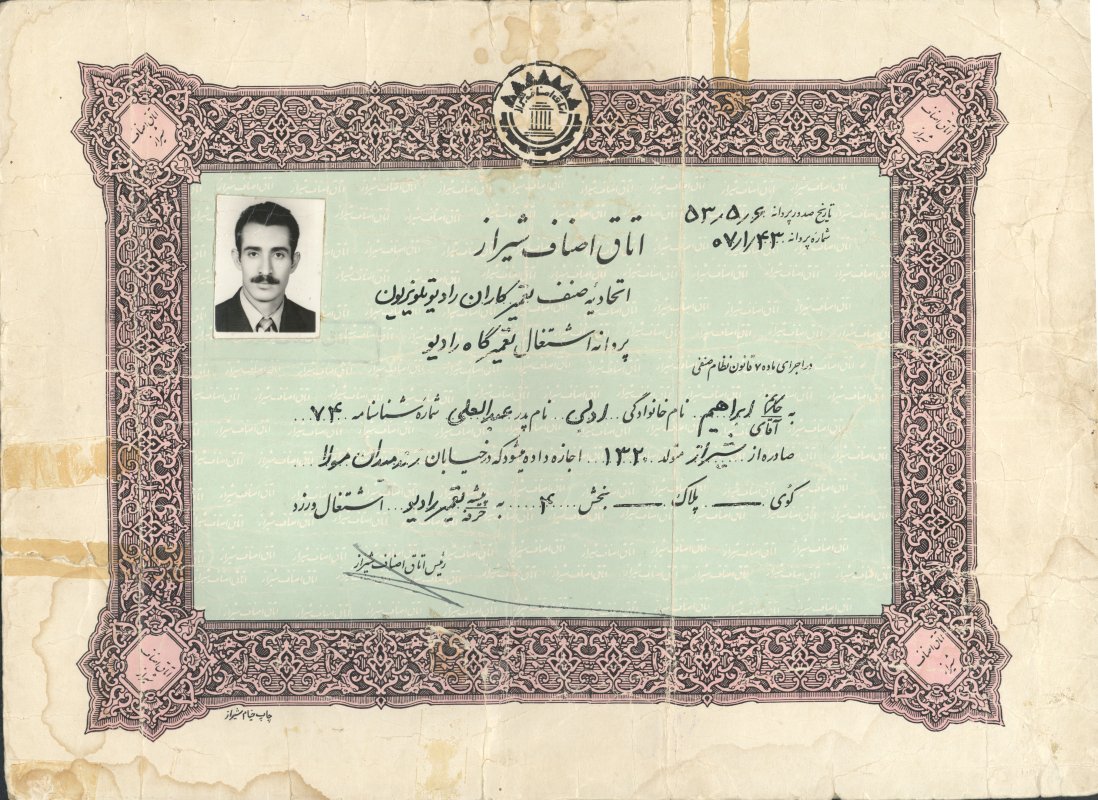 تاریخ صدور پروانه ۵۳،۵،۶
شماره پروانه ۰۷/۱/۴۳
اتاق اصناف شیراز
اتحادیهٔ صنف تعمیرکاران رادیو تلویزیون
پروانه اشتغال تعمیرگاه رادیو
در اجرای ماده ۷ قانون نظام صنفی
به خانم آقای ابراهیم نام خانوادگی نام پدر عبدالعلی شماره شناسنامه ۷۴
صادره از شیراز متولد ۱۳۲۰ اجازه داده میشود که در خیابان میدان مولا
کوی — پلاک — بخش ۴ به پیشه حرفه تعمیر رادیو اشتغال ورزد
رئیس اتاق اصناف شیراز
چاپ خیام شیراز